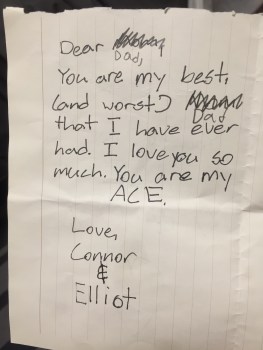 Dear
Dad,
You are my best,
(and worst)
Dad
that I have ever
had. I love you so
much. You are my
ACE.
Love,
Connor
&
Elliot